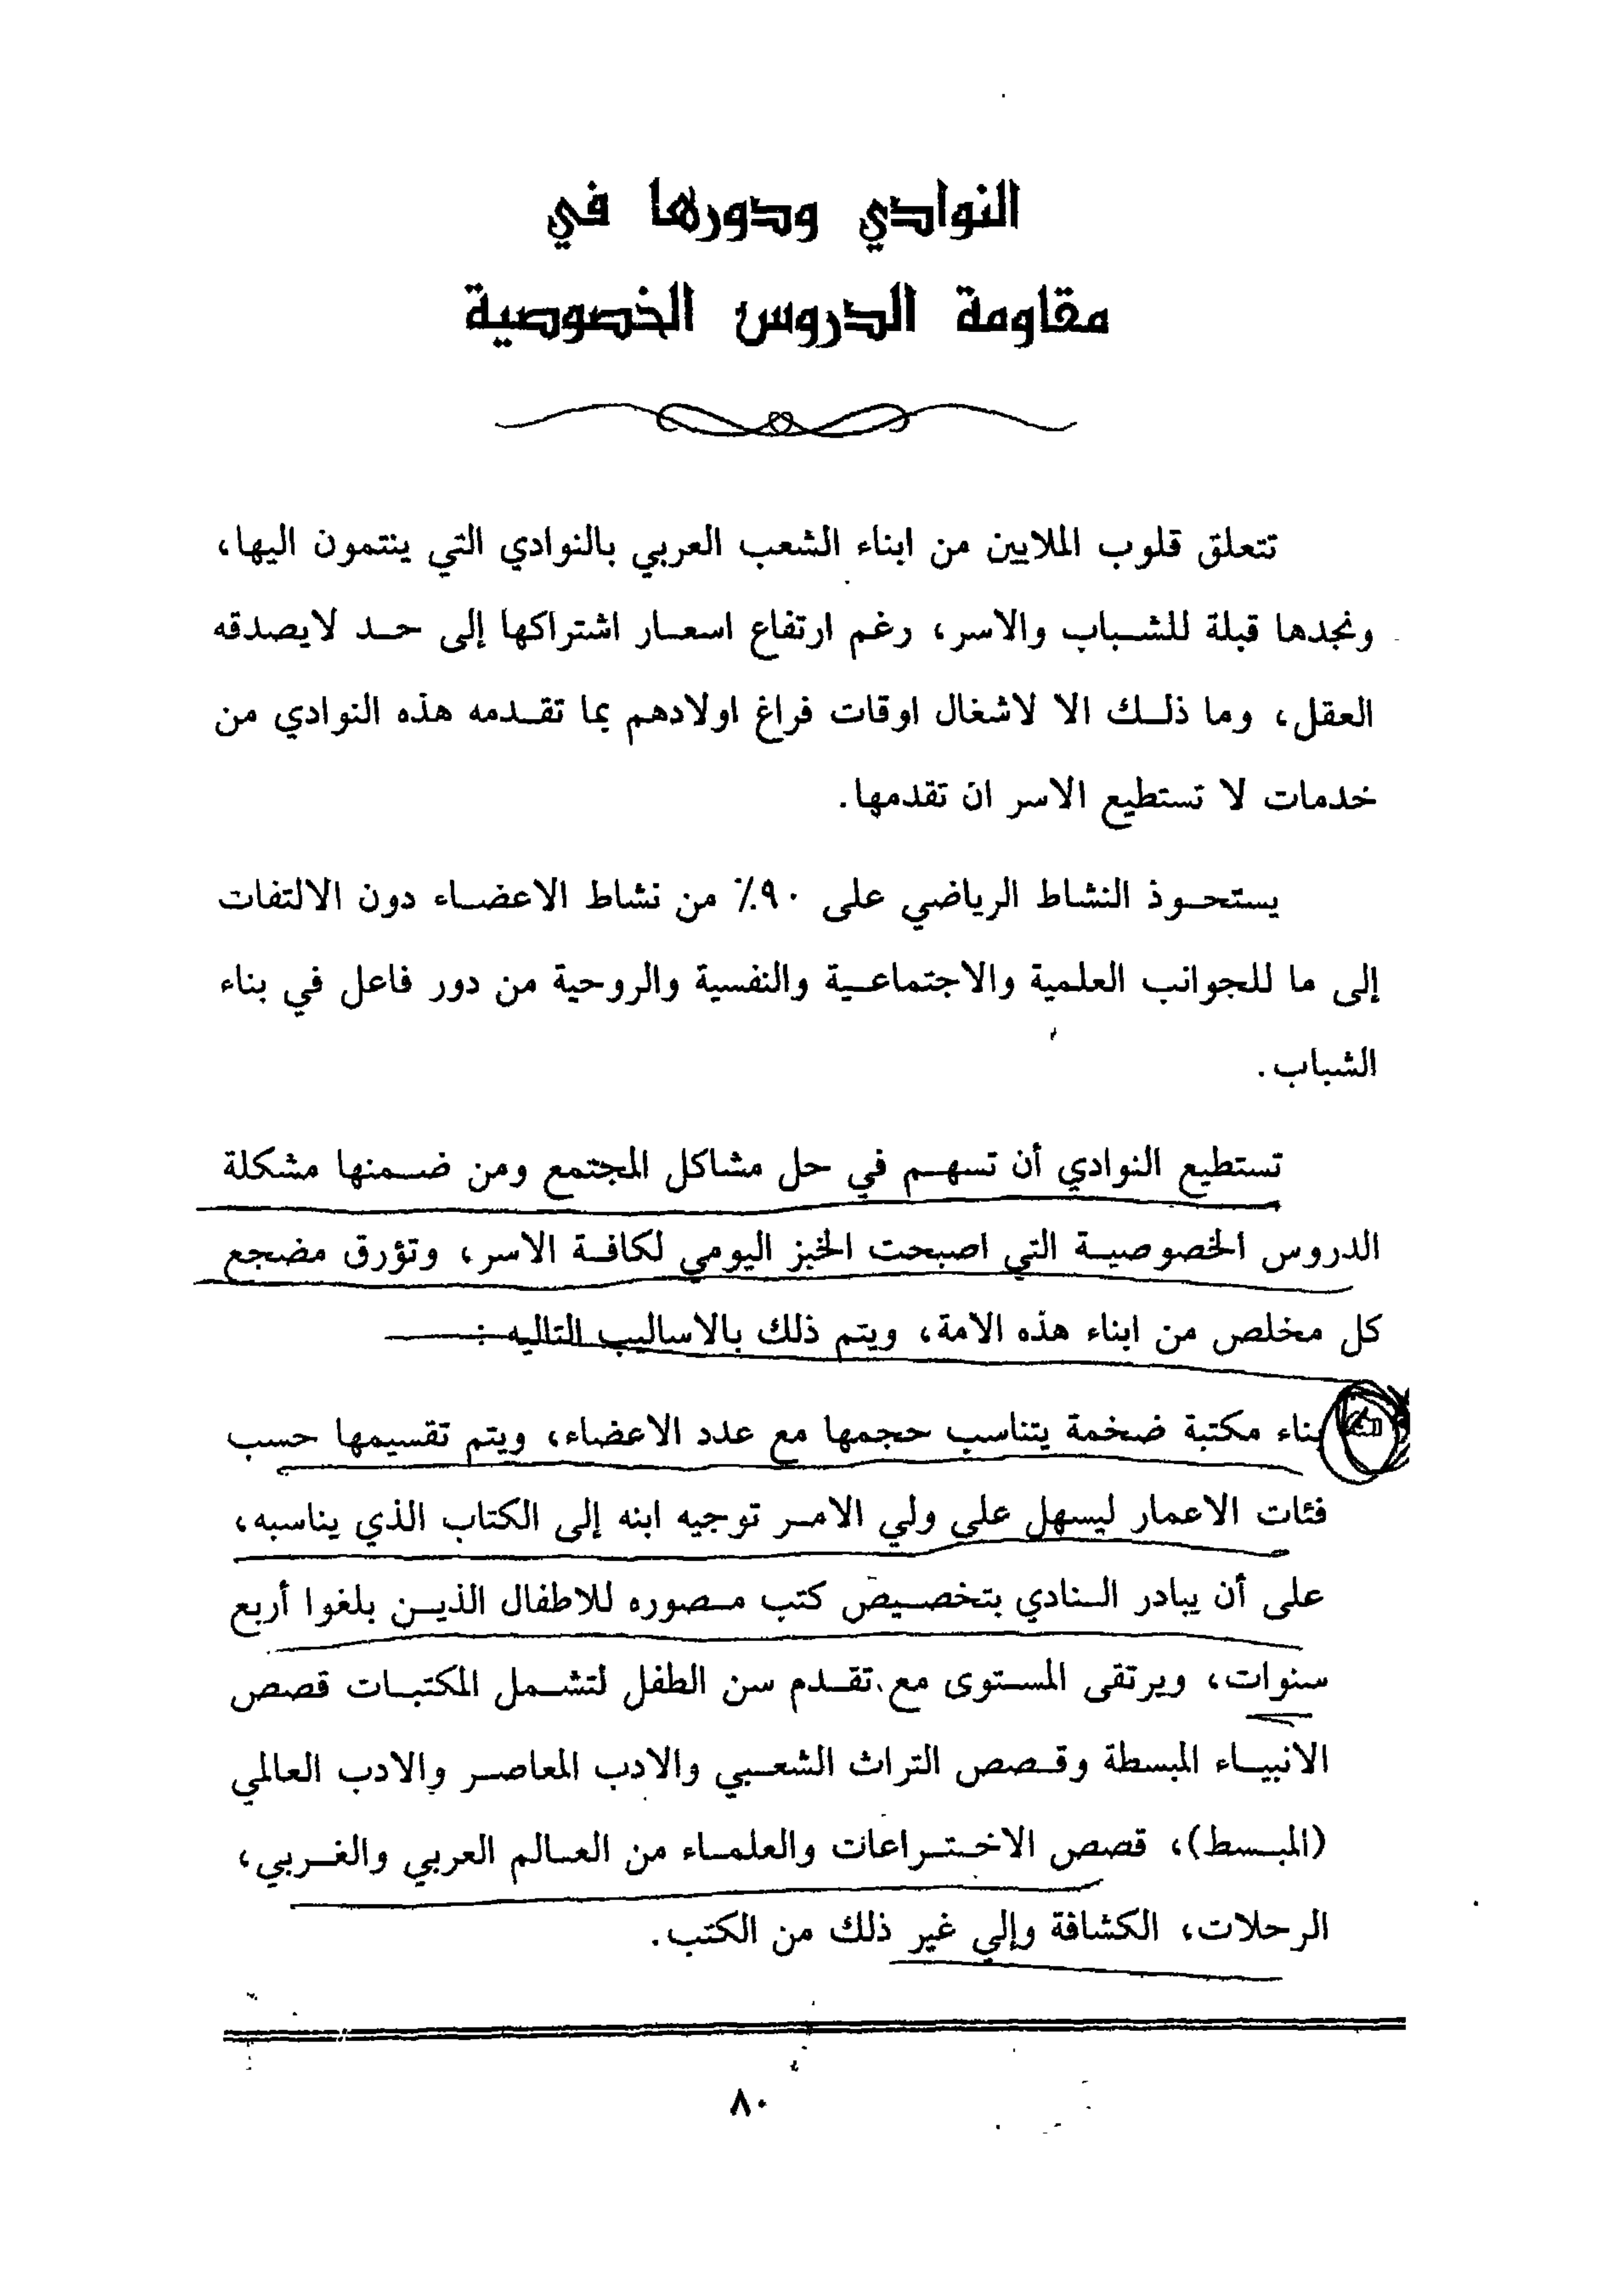 النوادي ودورها في
مقاومة الدروس الخصوصية
تتعلق قلوب الملايين من ابناء الشعب العربي بالنوادي التي ينتمون اليها،
ونجدها قبلة للشباب والاسر، رغم ارتفاع اسعار اشتراكها إلى حد لايصدقه
العقل، وما ذلك الا لاشغال اوقات فراغ اولادهم بما تقدمه هذه النوادي من
خدمات لا تستطيع الاسر ان تقدمها.
يستحوذ النشاط الرياضي على ٩٠٪ من نشاط الاعضاء دون الالتفات
إلى ما للجوانب العلمية والاجتماعية والنفسية والروحية من دور فاعل في بناء
الشباب.
تستطيع النوادي أن تسهم في حل مشاكل المجتمع ومن ضمنها مشكلة
الدروس الخصوصية التي اصبحت الخبز اليومي لكافة الاسر، وتؤرق مضجع
كل مخلص من ابناء هذه الامة، ويتم ذلك بالاساليب التاليه :
بناء مكتبة ضخمة يتناسب حجمها مع عدد الاعضاء، ويتم تقسيمها حسب
فئات الاعمار ليسهل على ولي الامر توجيه ابنه إلى الكتاب الذي يناسبه،
على أن يبادر النادي بتخصيص كتب مصوره للاطفال الذين بلغوا أربع
سنوات، ويرتقى المستوى مع تقدم سن الطفل لتشمل المكتبات قصص
الانبياء المبسطة وقصص التراث الشعبي والادب المعاصر والادب العالمي
(المبسط)، قصص الاختراعات والعلماء من العالم العربي والغربي،
الرحلات، الكشافة وإلي غير ذلك من الكتب.
٨٠